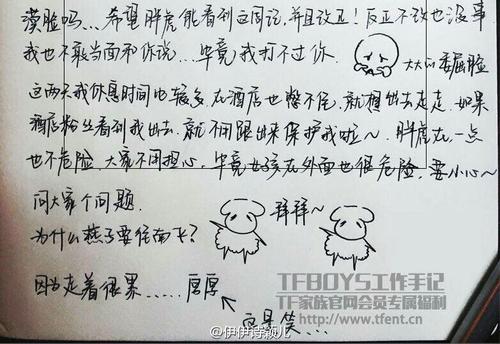 漠脸吗...希望胖虎能看到这周记,并且改正!反正不改也没事
我也不敢当面和你说...毕竟我打不过你.
大大的委屈脸
这两天我休息时间也较多,在酒店也憋不住,就想出去走走.如果
酒店粉丝看到我出去,就不用跟出来保护我啦~ 胖虎在,一点
也不危险,大家不用担心,毕竟女孩在外面也很危险,要小心~
问大家个问题.
拜拜~
为什么燕子要往南飞?
因为走着很累......厚厚
这是笑...
TFBOYS工作手记
TF家族官网会员专属福利
http://www.tfent.cn
@伊伊诗颖儿